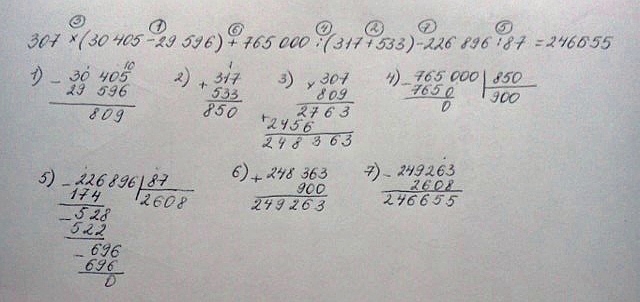 ③ ① ⑥ ④ ② ⑦ ⑤
307 × (30 405 - 29 596) + 765 000 : (317 + 533) - 226 896 : 87 = 246655
1) - 30 405
10
29 596
809
2) + 317
1
533
850
3) × 307
809
2763
+ 2456
248363
4) - 765 000 | 850
7650 900
0
5) - 226 896 | 87
174 2608
- 528
522
- 696
696
0
6) + 248 363
900
249263
7) - 249263
2608
246655